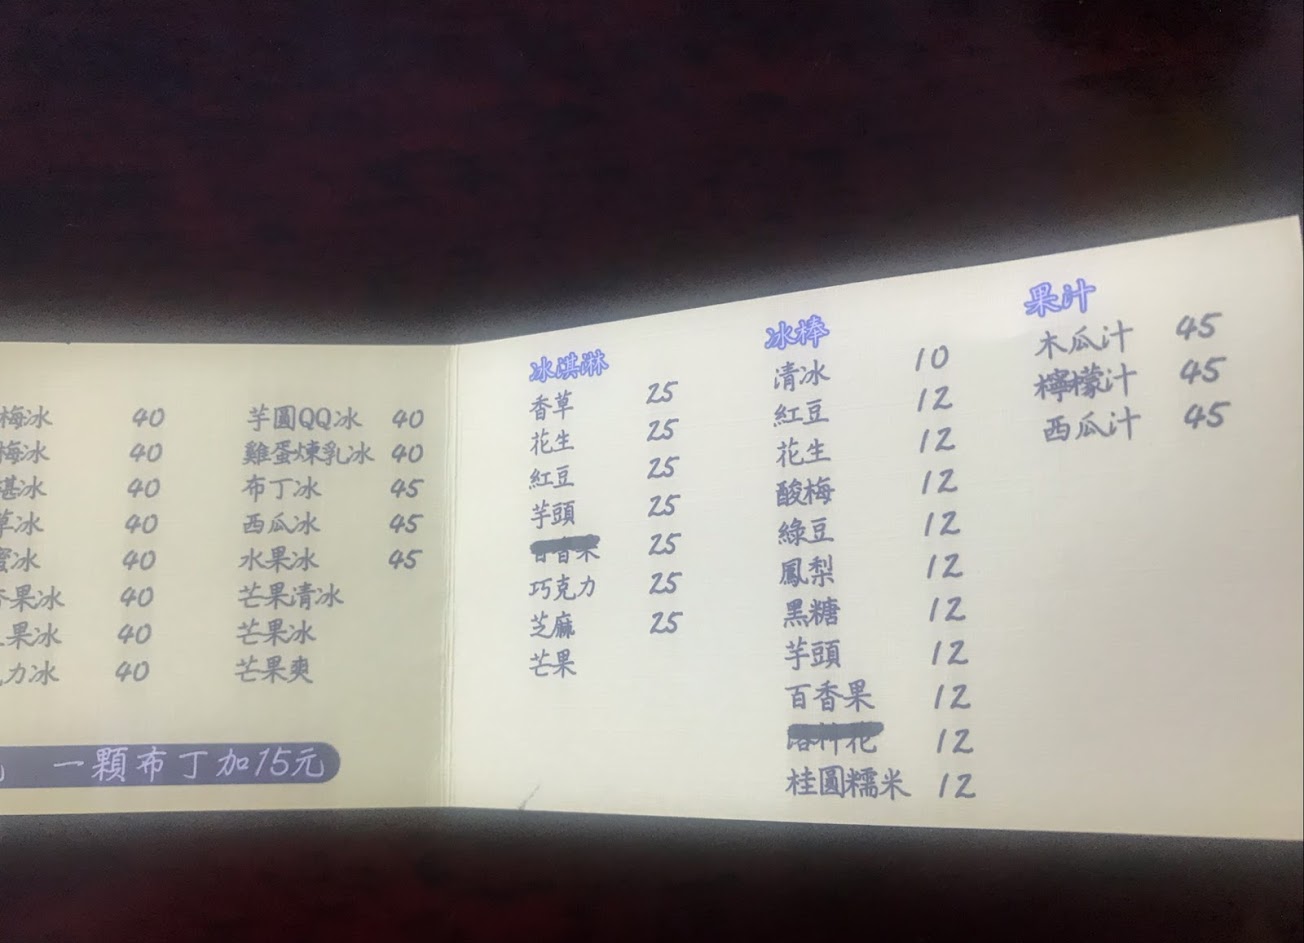 梅冰 40
梅冰 40
冰 40
草冰 40
蜜冰 40
香果冰 40
果冰 40
力冰 40
芋圓QQ冰 40
雞蛋煉乳冰 40
布丁冰 45
西瓜冰 45
水果冰 45
芒果清冰
芒果冰
芒果爽
一顆布丁加15元
冰淇淋
香草 25
花生 25
紅豆 25
芋頭 25
百香果 25
巧克力 25
芝麻 25
芒果
冰棒
清冰 10
紅豆 12
花生 12
酸梅 12
綠豆 12
鳳梨 12
黑糖 12
芋頭 12
百香果 12
洛神花 12
桂圓糯米 12
果汁
木瓜汁 45
檸檬汁 45
西瓜汁 45